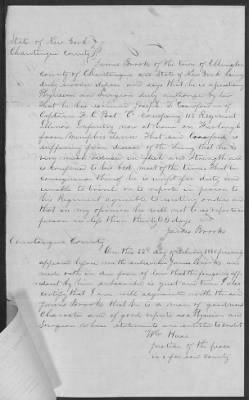 State of New York
Chautauqua County
James Brooks of the town of Ellington
County of Chautauqua and State of New York being
duly sworn deposes and says that he is a practicing
Physician and Surgeon duly authorized by law
That he has examined Joseph F. Crawford of
Captain Company 112 Regiment
Infantry now at home on Furlough
from Hospital That said Crawford is
suffering from disease of the lung that he is
very much reduced in flesh and strength and
is confined to his bed most of the time That in
consequence thereof he is unfit for duty and
unable to travel or to report in person to
his Regiment agreeable to existing orders and
that in my opinion he will not be so
in less than thirty days
James Brooks
Chautauqua County
On this 22d day of February 1865 personally
appeared before me the within James Brooks and
made oath in due form of law that the foregoing affi
davit by him subscribed is just and true I also
certify that I am well acquainted with the said
James Brooks that he is a man of good moral
Character and of good repute as a Physician and
Surgeon whose statements are entitled to credit
Wm
Justice of the peace
in & for said County